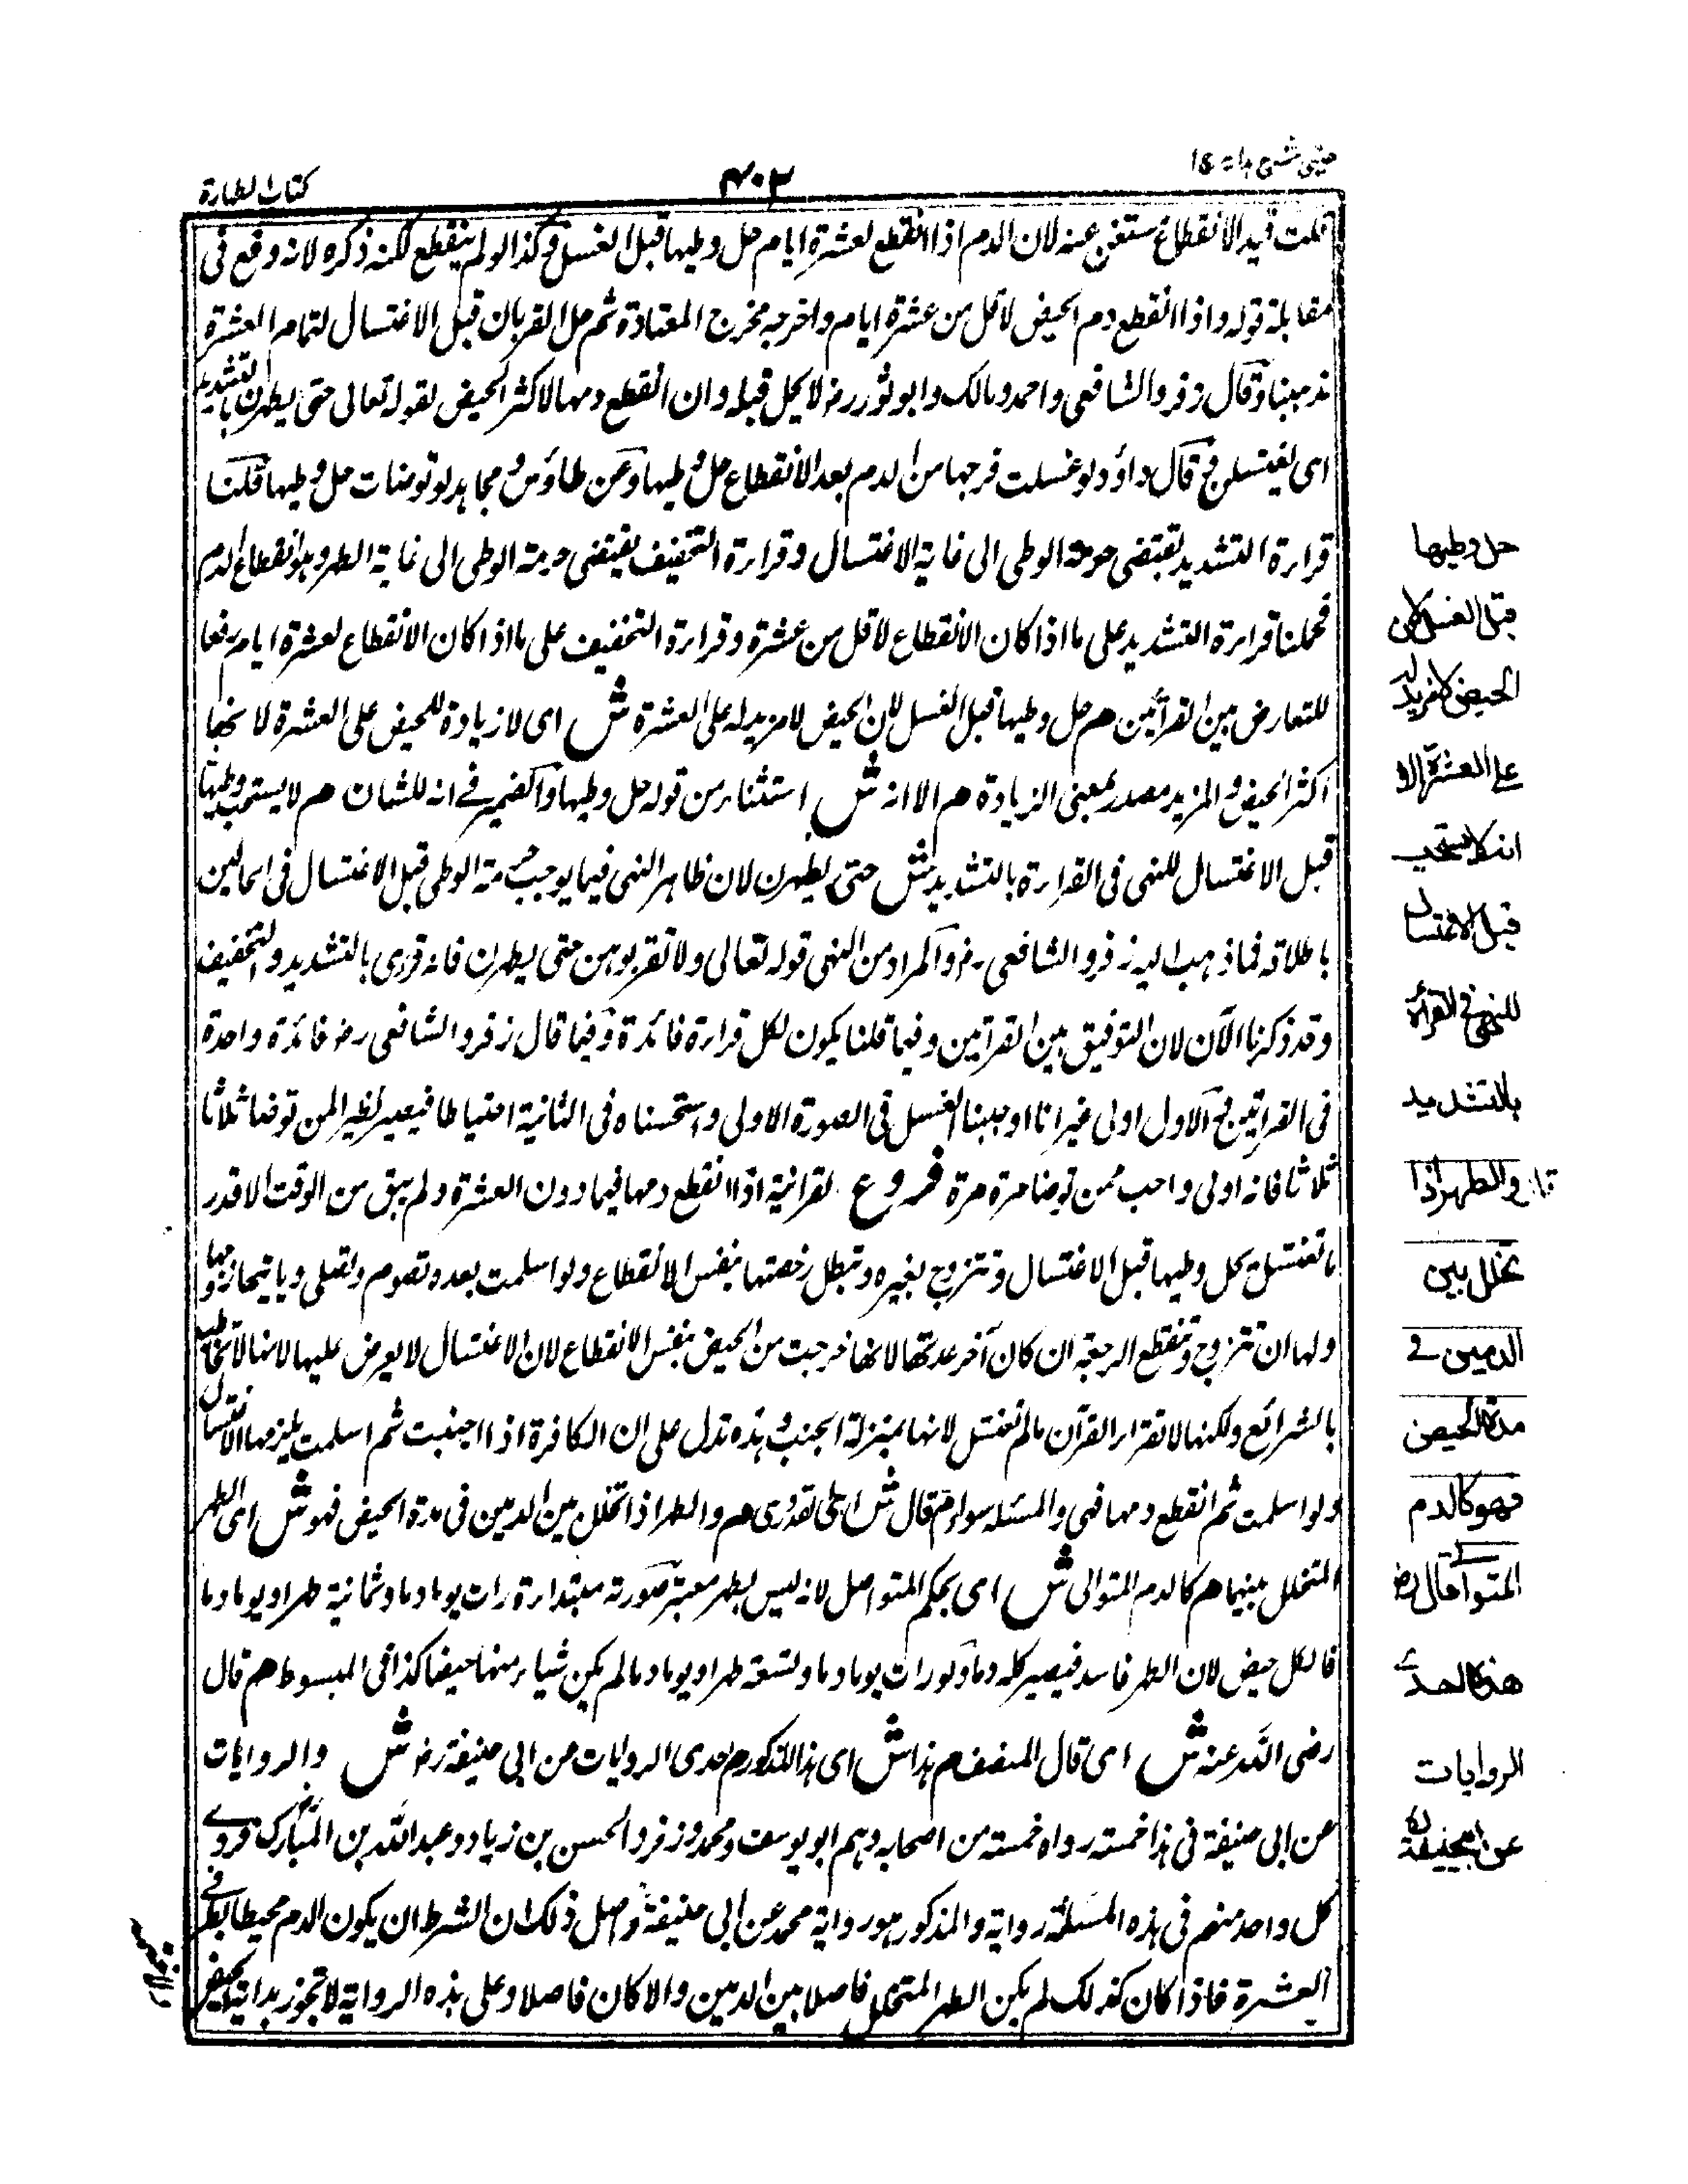 عینی شرح ہدایہ
۴۰۳
کتاب الطهارة
قلت قید الانقطاع مستغنی عنه لان الدم اذا انقطع لعشرة ایام حل وطیها قبل الغسل وکذا لو لم ینقطع لکنه ذکره لانه وقع فی
مقابلة قوله واذا انقطع دم الحیض لاقل من عشرة ایام واخرجه مخرج المعتادة ثم حل القربان قبل الاغتسال لتمام العشرة
مذهبنا وقال زفر والشافعی واحمد ومالک وابو ثور رض لا یحل قبله وان انقطع دمها لاکثر الحیض لقوله تعالی حتی یطهرن بالتشدید
ای یغتسلن ج قال داؤد لو غسلت فرجها من الدم بعد الانقطاع حل وطیها وعن طاؤس ومجاهد لو توضات حل وطیها قلنا
قراءة التشدید یقتضی حرمة الوطی الی غایة الاغتسال وقراءة التخفیف یقتضی حرمة الوطی الی غایة الطهر وهو انقطاع الدم
فحملنا قراءة التشدید علی ما اذا کان الانقطاع لاقل من عشرة وقراءة التخفیف علی ما اذا کان الانقطاع لعشرة ایام رفعا
للتعارض بین القرأتین هم حل وطیها قبل الغسل لان الحیض لا مزید له علی العشرة ش ای لا زیادة للحیض علی العشرة لانها
اکثر الحیض والمزید مصدر بمعنی الزیادة هم الا انه ش استثناء من قوله حل وطیها والضمیر فے انه للشان هم لا یستحب وطیها
قبل الاغتسال للنهی فی القراءة بالتشدید ش حتی یطهرن لان ظاهر النهی فیما یوجب حرمة الوطی قبل الاغتسال فی الحالین
باطلاقه فما ذهب الیه زفر والشافعی رض والمراد من النهی قوله تعالی ولا تقربوهن حتی یطهرن فانه قری بالتشدید والتخفیف
وقد ذکرنا الآن لان التوفیق بین القرأتین وفیما قلنا یکون لکل قراءة فائدة وفیما قال زفر والشافعی رض فائدة واحدة
فی القراتین ج الاول اولی غیر انا اوجبنا الغسل فی الصورة الاولی واستحسناه فی الثانیة احتیاطا فیصیر نظیر المن توضا ثلاثا
ثلاثا فانه اولی واحب ممن توضا مرة مرة فروع لقرانیة اذا انقطع دمها فیما دون العشرة ولم یبق من الوقت الا قدر
ما تغتسل یحل وطیها قبل الاغتسال وتتزوج بغیره وتبطل رخصتها بنفس الانقطاع ولو اسلمت بعده تصوم وتصلی ویاتیها زوجها
ولها ان تتزوج وتنقطع الرجعة ان کان آخر عدتها لانها خرجت من الحیض بنفس الانقطاع لان الاغتسال لا یعرض علیها لانها لا تخاطب
بالشرائع ولکنها لا تقرا القرآن مالم تغتسل لانها بمنزلة الجنب وهذه تدل علی ان الکافرة اذا اجنبت ثم اسلمت یلزمها الاغتسال
ولو اسلمت ثم انقطع دمها فهی والمسلمة سواء م قال ش ای القدوری هم والطهر اذا تخلل بین الدمین فی مدة الحیض فهو ش ای الطهر
المتخلل بینهما هم کالدم المتوالی ش ای بحکم المتواصل لانه لیس بطهر معتبر صورته مبتداءة رات یوما دما وثمانیة طهرا ویوما دما
فالکل حیض لان الطهر فاسد فیصیر کله دما ولو رات یوما دما وتسعة طهرا ویوما دما لم یکن شیاء منها حیضا کذا فی المبسوط هم قال
رضی الله عنه ش ای قال المصنف م هذا ش ای هذا المذکور م احدی الروایات عن ابی حنیفة رض ش والروایات
عن ابی حنیفة فی هذا خمسة رواه خمسة من اصحابه وهم ابو یوسف ومحمد وزفر والحسن بن زیاد وعبد الله بن المبارک وروے
کل واحد منهم فی هذه المسئلة روایة والمذکور هو روایة محمد عن ابی حنیفة واصل ذلک ان الشرط ان یکون الدم محیطا بطرفے
العشرة فاذا کان کذلک لم یکن الطهر المتخلل فاصلا بین الدمین والا کان فاصلا وعلی هذه الروایة لا تجوز بدایة الحیض
حل وطیها
قبل الغسل لان
الحیض لا مزید له
علی العشرة الا
انه لا یستحب
قبل الاغتسال
للنهی فی القرأة
بالتشدید
قال والطهر اذا
تخلل بین
الدمین فے
مدة الحیض
فهو کالدم
المتوالی قال رض
هذه احدے
الروایات
عن ابیحنیفة